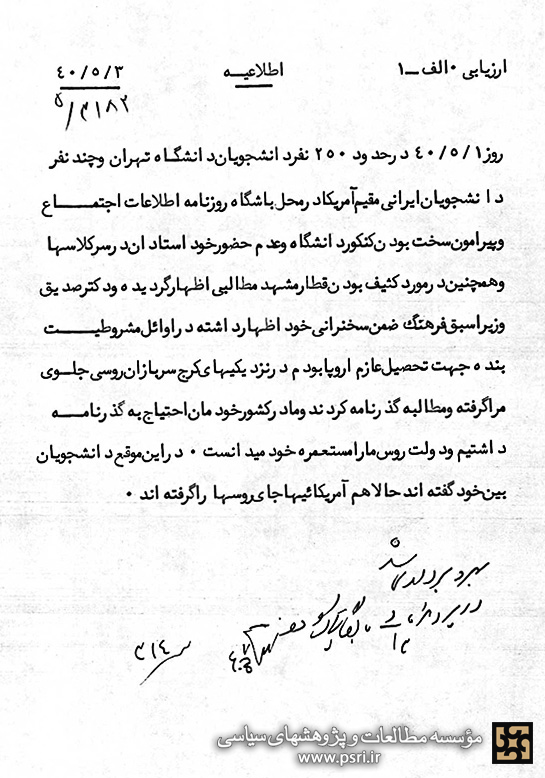 ارزیابی ۰ الف ــ ۱
اطلاعیــه
۴۰/۵/۳
روز ۴۰/۵/۱ در حدود ۲۵۰ نفر دانشجویان دانشگاه تهران و چند نفر
دانشجویان ایرانی مقیم آمریکا در محل باشگاه روزنامه اطلاعات اجتمـــــاع
و پیرامون سخت بودن کنکور دانشگاه و عدم حضور خود استادان در سر کلاسها
و همچنین در مورد کثیف بودن قطار مشهد مطالبی اظهار گردیده و دکتر صدیق
وزیر اسبق فرهنگ ضمن سخنرانی خود اظهار داشته در اوائل مشروطیـــت
بنده جهت تحصیل عازم اروپا بودم در نزدیکیهای کرج سربازان روسی جلوی
مرا گرفته و مطالبه گذرنامه کردند و ما در کشور خودمان احتیاج به گذرنامـــه
داشتیم و دولت روس ما را مستعمره خود میدانست ۰ در این موقع دانشجویان
بین خود گفته اند حالا هم آمریکائیها جای روسها را گرفته اند ۰
۳۱۴
مؤسسه مطالعات و پژوهشهای سیاسی
www.psri.ir